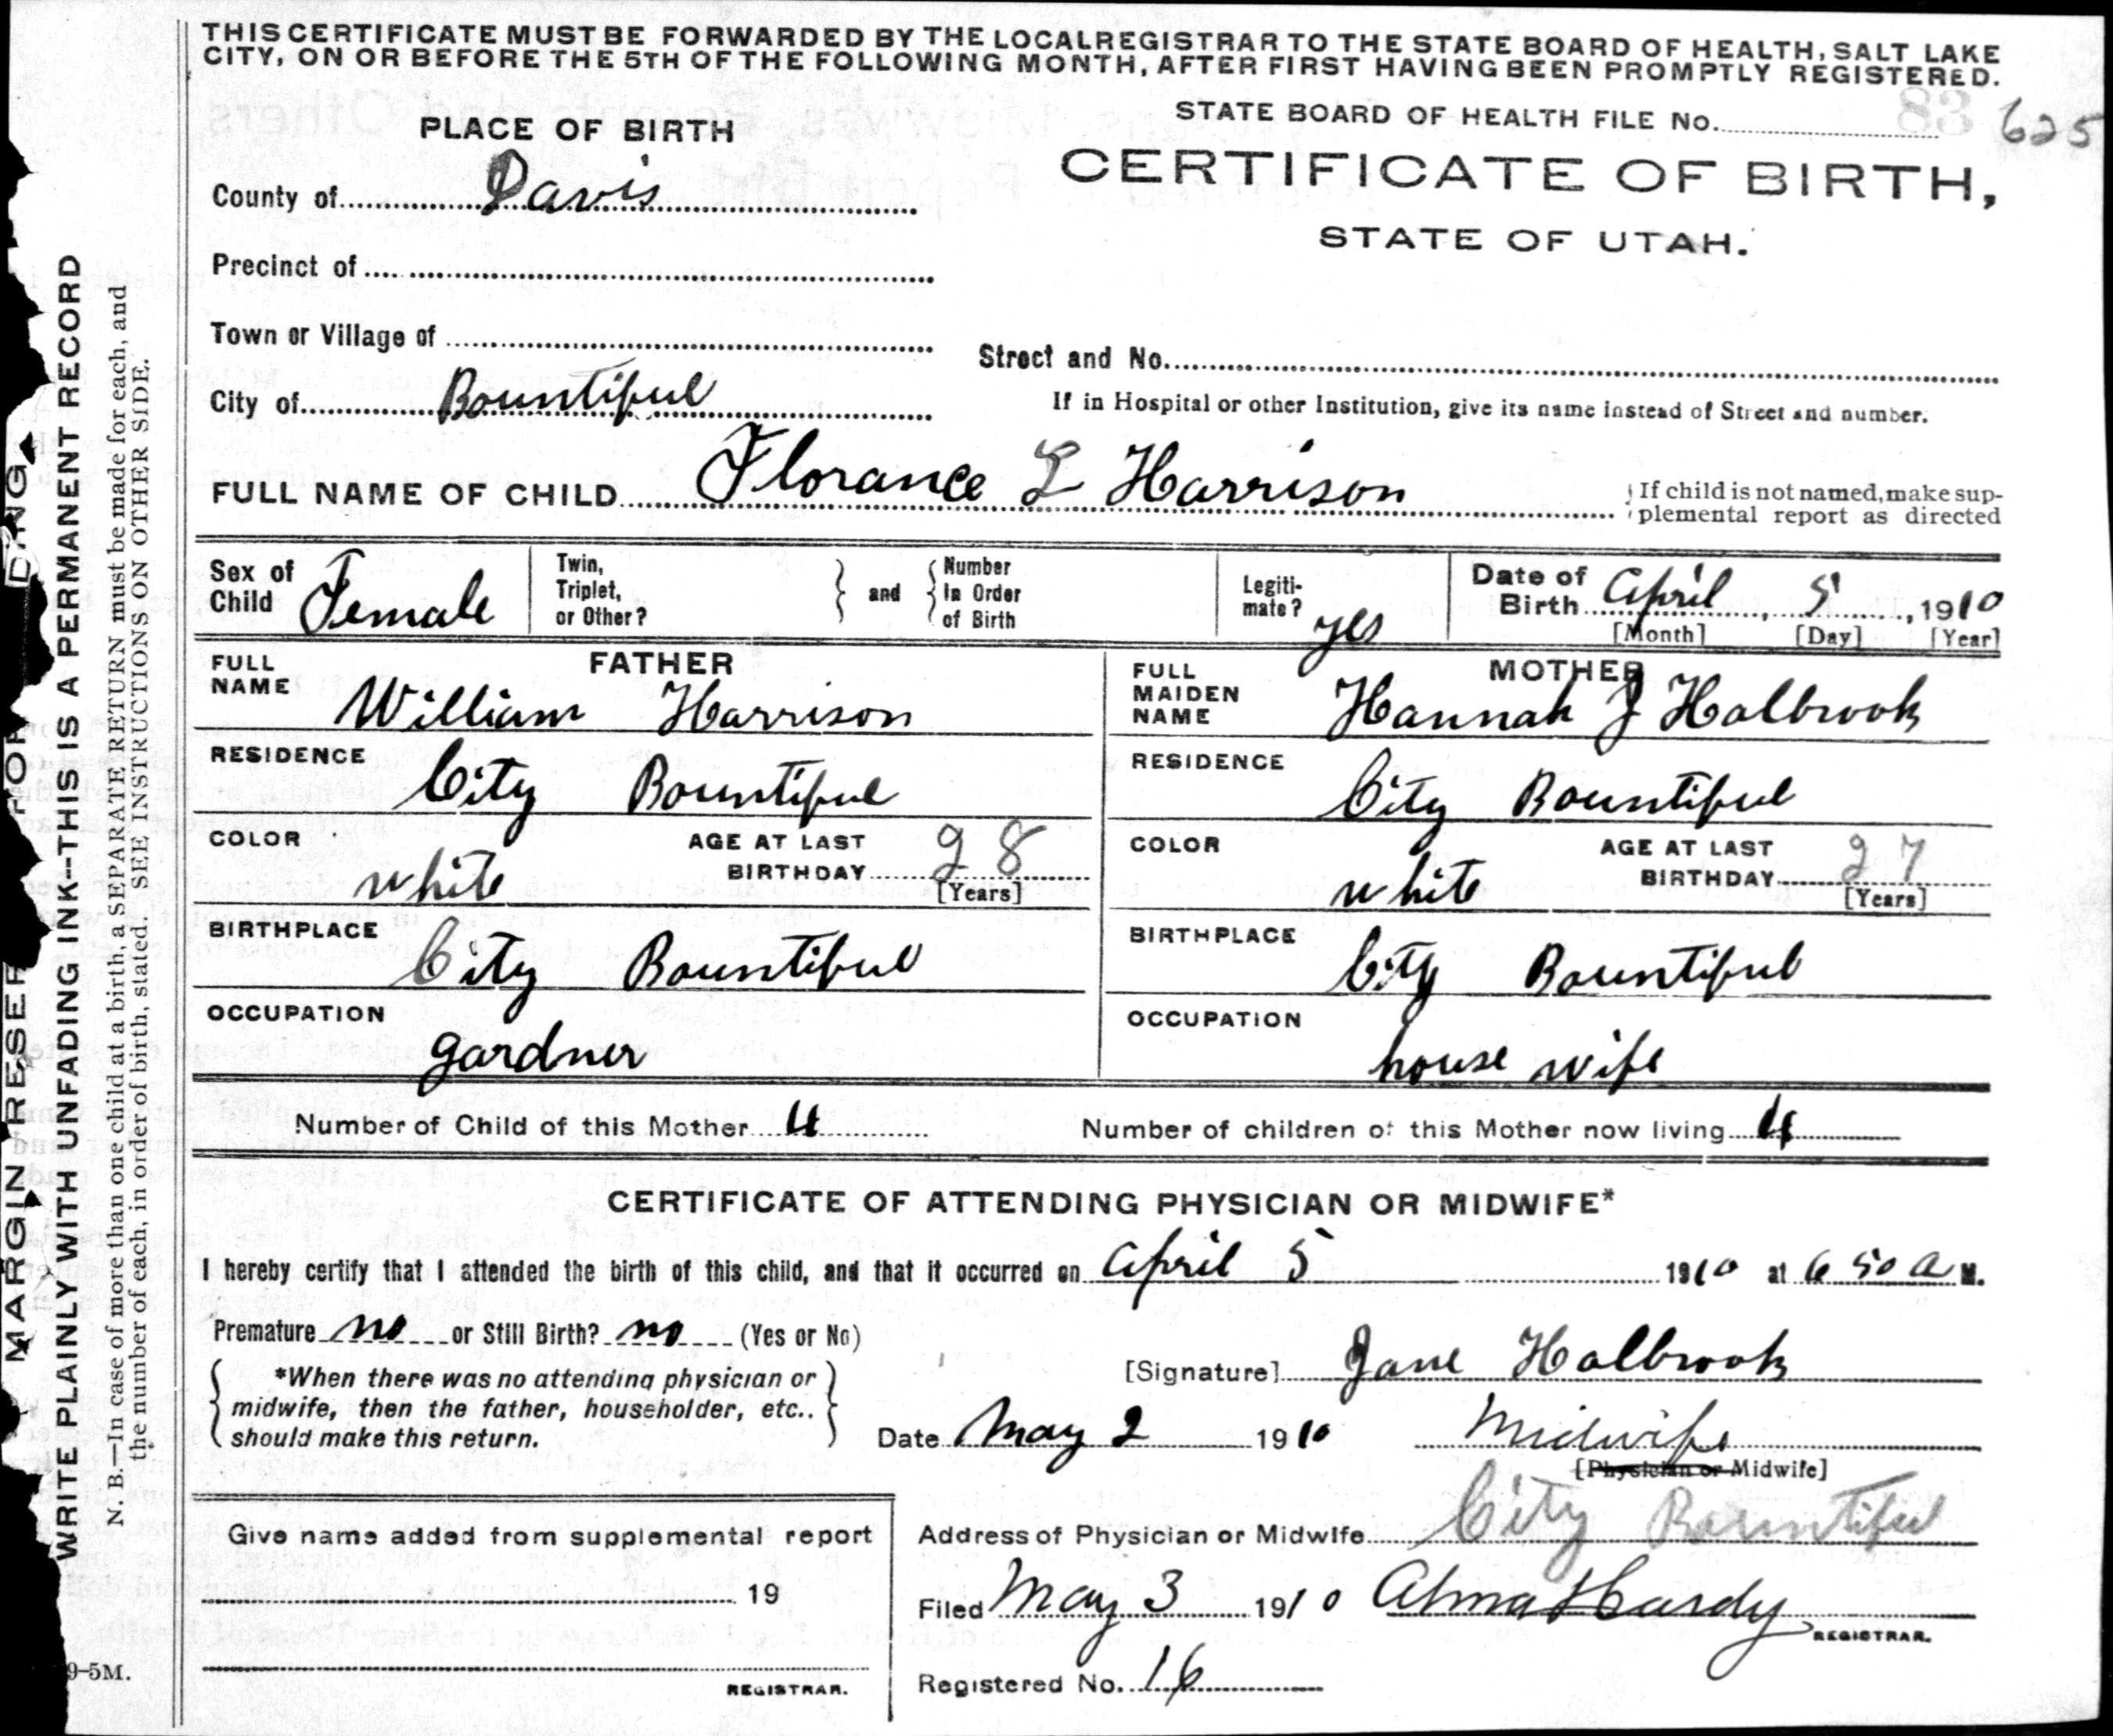 THIS CERTIFICATE MUST BE FORWARDED BY THE LOCAL REGISTRAR TO THE STATE BOARD OF HEALTH, SALT LAKE
CITY, ON OR BEFORE THE 5TH OF THE FOLLOWING MONTH, AFTER FIRST HAVING BEEN PROMPTLY REGISTERED.
STATE BOARD OF HEALTH FILE No. 83 625
PLACE OF BIRTH
CERTIFICATE OF BIRTH,
STATE OF UTAH.
County of Davis
Precinct of
Town or Village of
Street and No.
City of Bountiful
If in Hospital or other Institution, give its name instead of Street and number.
FULL NAME OF CHILD Florance L Harrison
If child is not named, make sup-
plemental report as directed
Sex of Child Female
Twin, Triplet, or Other?
and
Number In Order of Birth
Legiti-mate? yes
Date of Birth April 5, 1910
[Month] [Day] [Year]
FATHER
FULL NAME William Harrison
RESIDENCE City Bountiful
COLOR white
AGE AT LAST BIRTHDAY 28
[Years]
BIRTHPLACE City Bountiful
OCCUPATION gardner
MOTHER
FULL MAIDEN NAME Hannah J Holbrook
RESIDENCE City Bountiful
COLOR white
AGE AT LAST BIRTHDAY 27
[Years]
BIRTHPLACE City Bountiful
OCCUPATION house wife
Number of Child of this Mother 4
Number of children of this Mother now living 4
CERTIFICATE OF ATTENDING PHYSICIAN OR MIDWIFE*
I hereby certify that I attended the birth of this child, and that it occurred on April 5 1910 at 6 50 a M.
Premature no or Still Birth? no (Yes or No)
*When there was no attending physician or
midwife, then the father, householder, etc..
should make this return.
[Signature] Jane Holbrook
Date May 2 1910
Midwife
[Physician or Midwife]
Address of Physician or Midwife City Bountiful
Give name added from supplemental report
19
REGISTRAR.
Filed May 3 1910 Alma Hardy
REGISTRAR.
Registered No. 16
MARGIN RESER FOR
WRITE PLAINLY WITH UNFADING INK--THIS IS A PERMANENT RECORD
N. B.—In case of more than one child at a birth, a SEPARATE RETURN must be made for each, and
the number of each, in order of birth, stated. SEE INSTRUCTIONS ON OTHER SIDE.
9-5M.